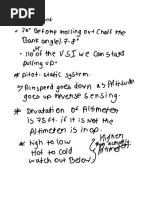 • 20° Before Rolling out (half the
Bank angle). 7.8°
or
• 110 of the V.S.I we can start
pulling up
* pitot-static system.
↗ Airspeed goes down as Altitude
goes up reverse sensing.
* Devatation of Altimeter
is 75ft. if it is Not the
Altimeter is in op.
* high to low Higher
Hot to cold
watch out Below